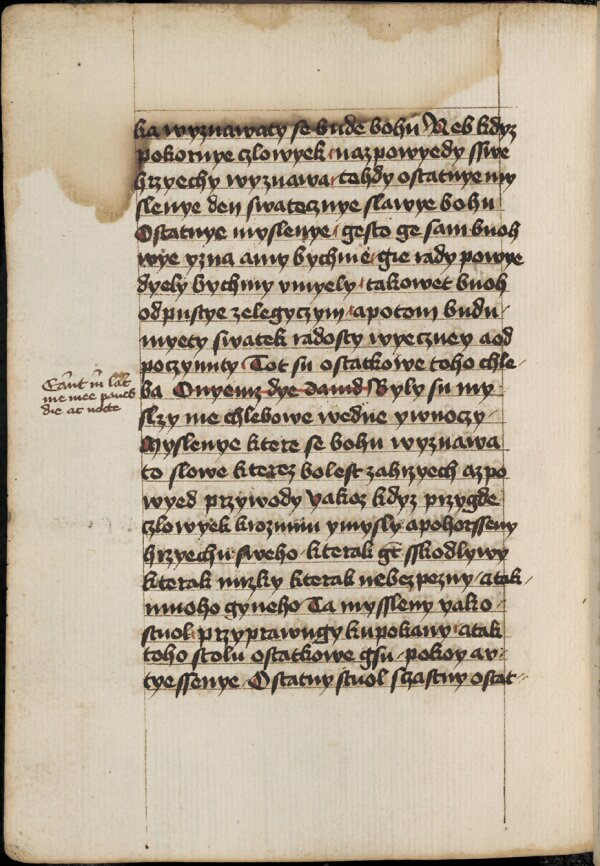 ka wyznawaty se bude bohu Neb kdyz
pokornye czlowyek nazpowyedy sswe
hrzyechy wyznawa tehdy ostatnye my
slenye den swatecznye slawye bohu
Ostatnye myslenye gesto ge sam buoh
wye yzna amy bychme gie rady powye
dyely bychmy vmyely takowet buoh
odpustye zelegyczym apotom budu
myety swatek radosty wyeczney aod
poczynuty Tot su ostatkowe toho chle-
ba Onyemz dye Dauid Byly su my
slzy me chlebowe wedne ywnoczy
Myslenye ktere se bohu wyznawa
to slowe kterez bolest zahrzyech azpo
wyed przywody yakoz kdyz przygde
czlowyek krozumu ymysly apohorsseny
hrzyechu sweho kterak gt sskodlywy
kterak mrzky kterak nebezpezny atak
mnoho gyneho Ta myssleny yako
stuol przyprawugy kupokany atak
toho stolu ostatkowe gsu pokoy av-
tyessenye Ostatny stuol szastny ostat-
fuerunt michi lacrime mee panes
die ac nocte